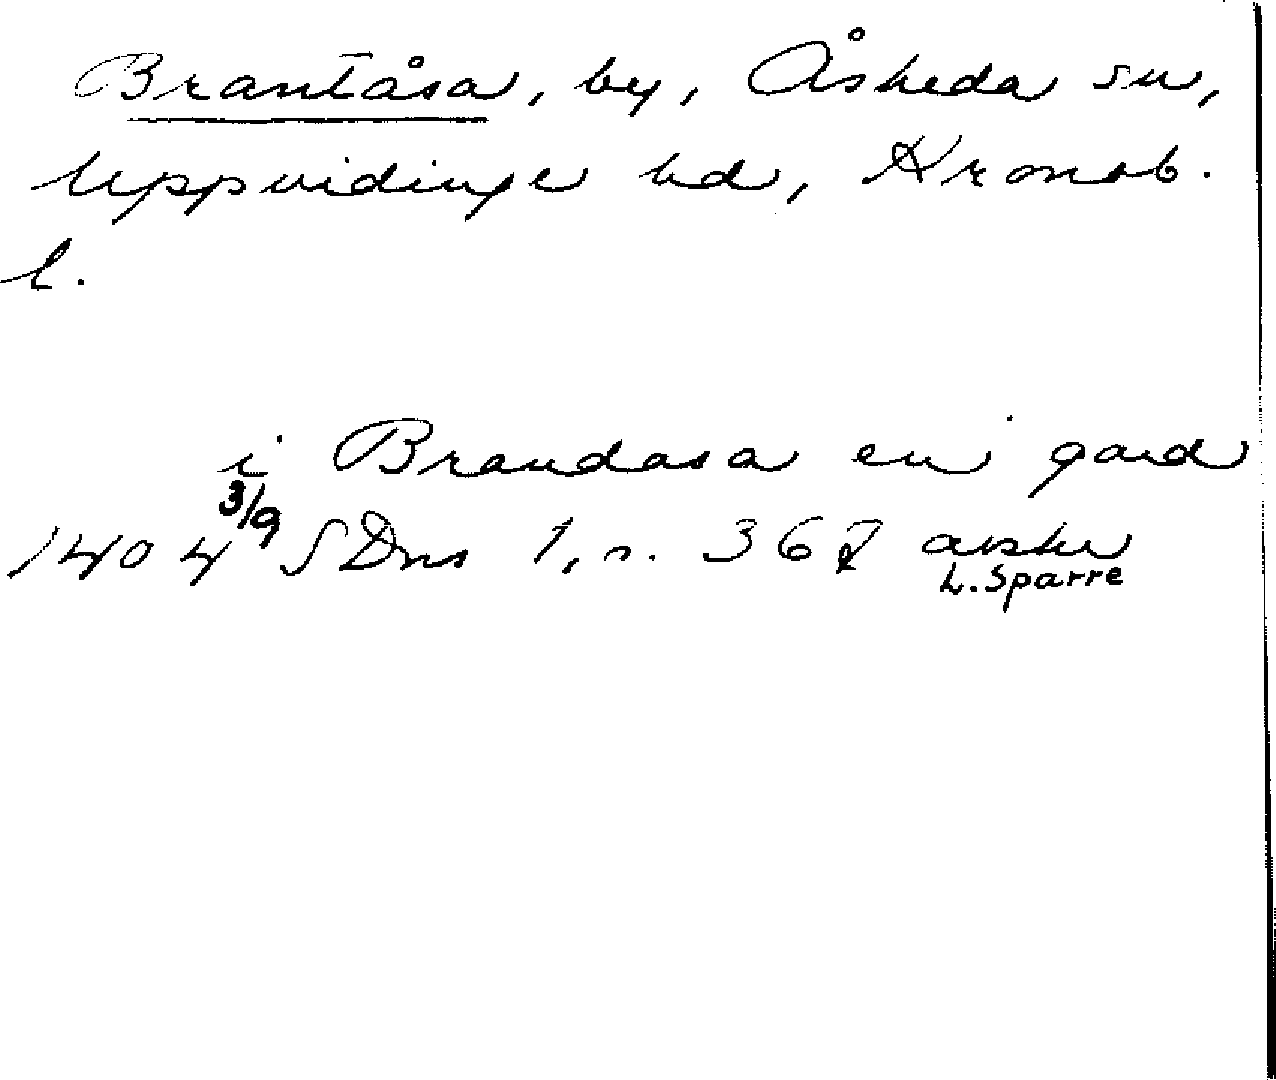 Brantåsa, by, Åsheda sn,
Uppvidinge hd, Kronob.
l.
i Brandasa en gard
3/9
1404 SDns 1, s. 367 avskr
L. Sparre